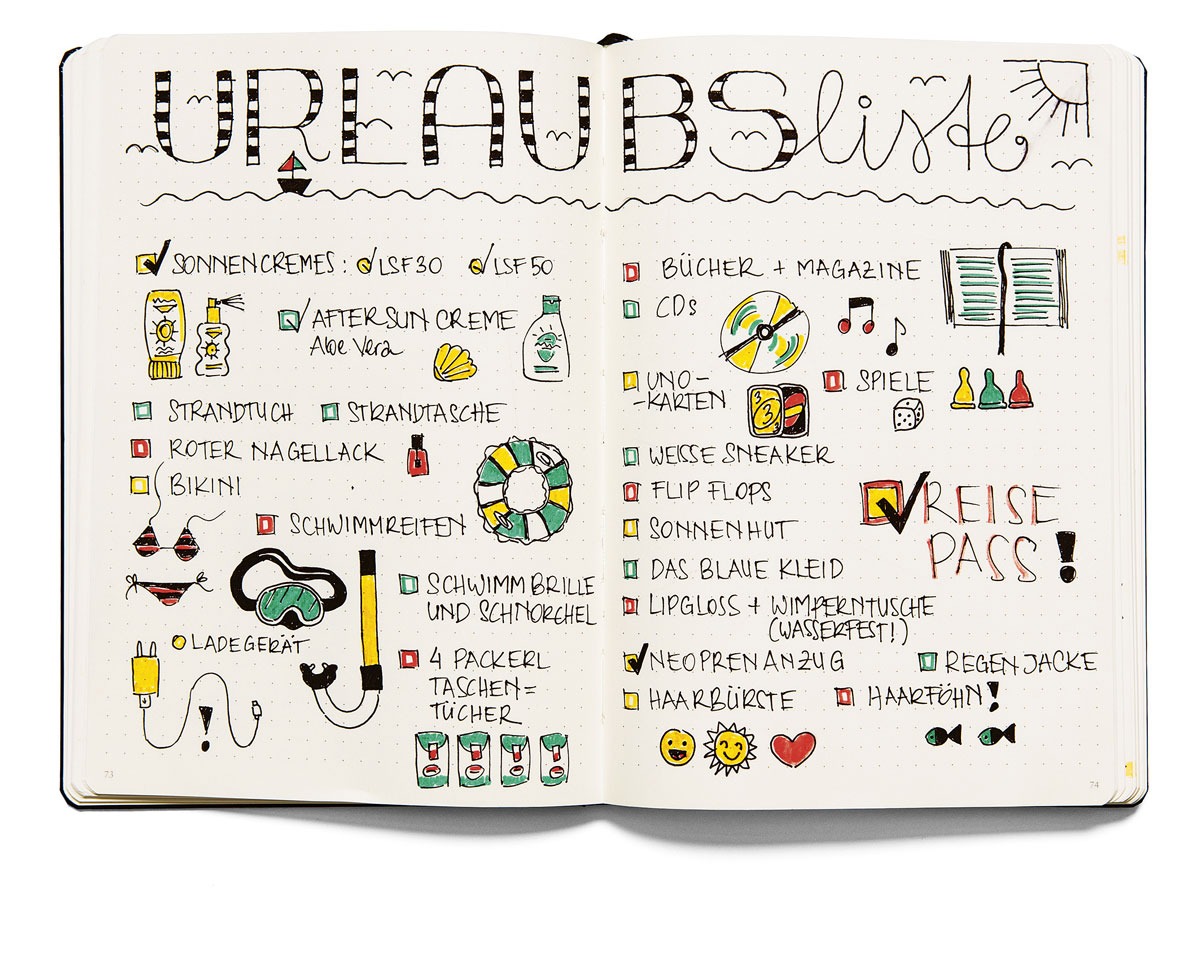 URLAUBSliste
SONNENCREMES: LSF 30 LSF 50
AFTER SUN CREME
Aloe Vera
STRANDTUCH STRANDTASCHE
ROTER NAGELLACK
BIKINI
SCHWIMMREIFEN
SCHWIMMBRILLE
UND SCHNORCHEL
LADEGERÄT
4 PACKERL
TASCHEN=
TÜCHER
73
BÜCHER + MAGAZINE
CDs
UNO-
-KARTEN
SPIELE
3
3
WEISSE SNEAKER
FLIP FLOPS
SONNENHUT
DAS BLAUE KLEID
REISE
PASS!
LIPGLOSS + WIMPERNTUSCHE
(WASSERFEST!)
NEOPRENANZUG REGENJACKE
HAARBÜRSTE HAARFÖHN!
74